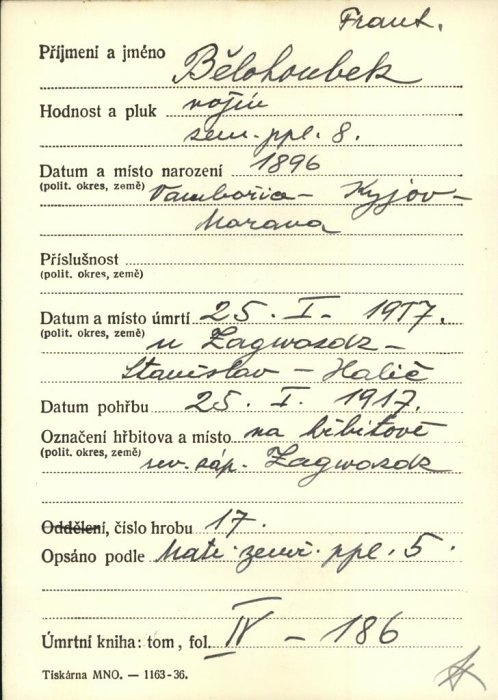 Frant.
Příjmení a jméno Bělohoubek
Hodnost a pluk vojín
zem. ppl. 8.
Datum a místo narození 1896
(polit. okres, země) Vambořice - Kyjov -
Morava
Příslušnost
(polit. okres, země)
Datum a místo úmrtí 25. I. 1917.
(polit. okres, země) u Zagwozdz -
Stanislav - Halič
Datum pohřbu 25. I. 1917.
Označení hřbitova a místo na hřbitově
(polit. okres, země) sev. záp. Zagwozdz
Oddělení, číslo hrobu 17.
Opsáno podle Matr. zemř. ppl. 5.
Úmrtní kniha: tom, fol. IV - 186
Tiskárna MNO. — 1163-36.